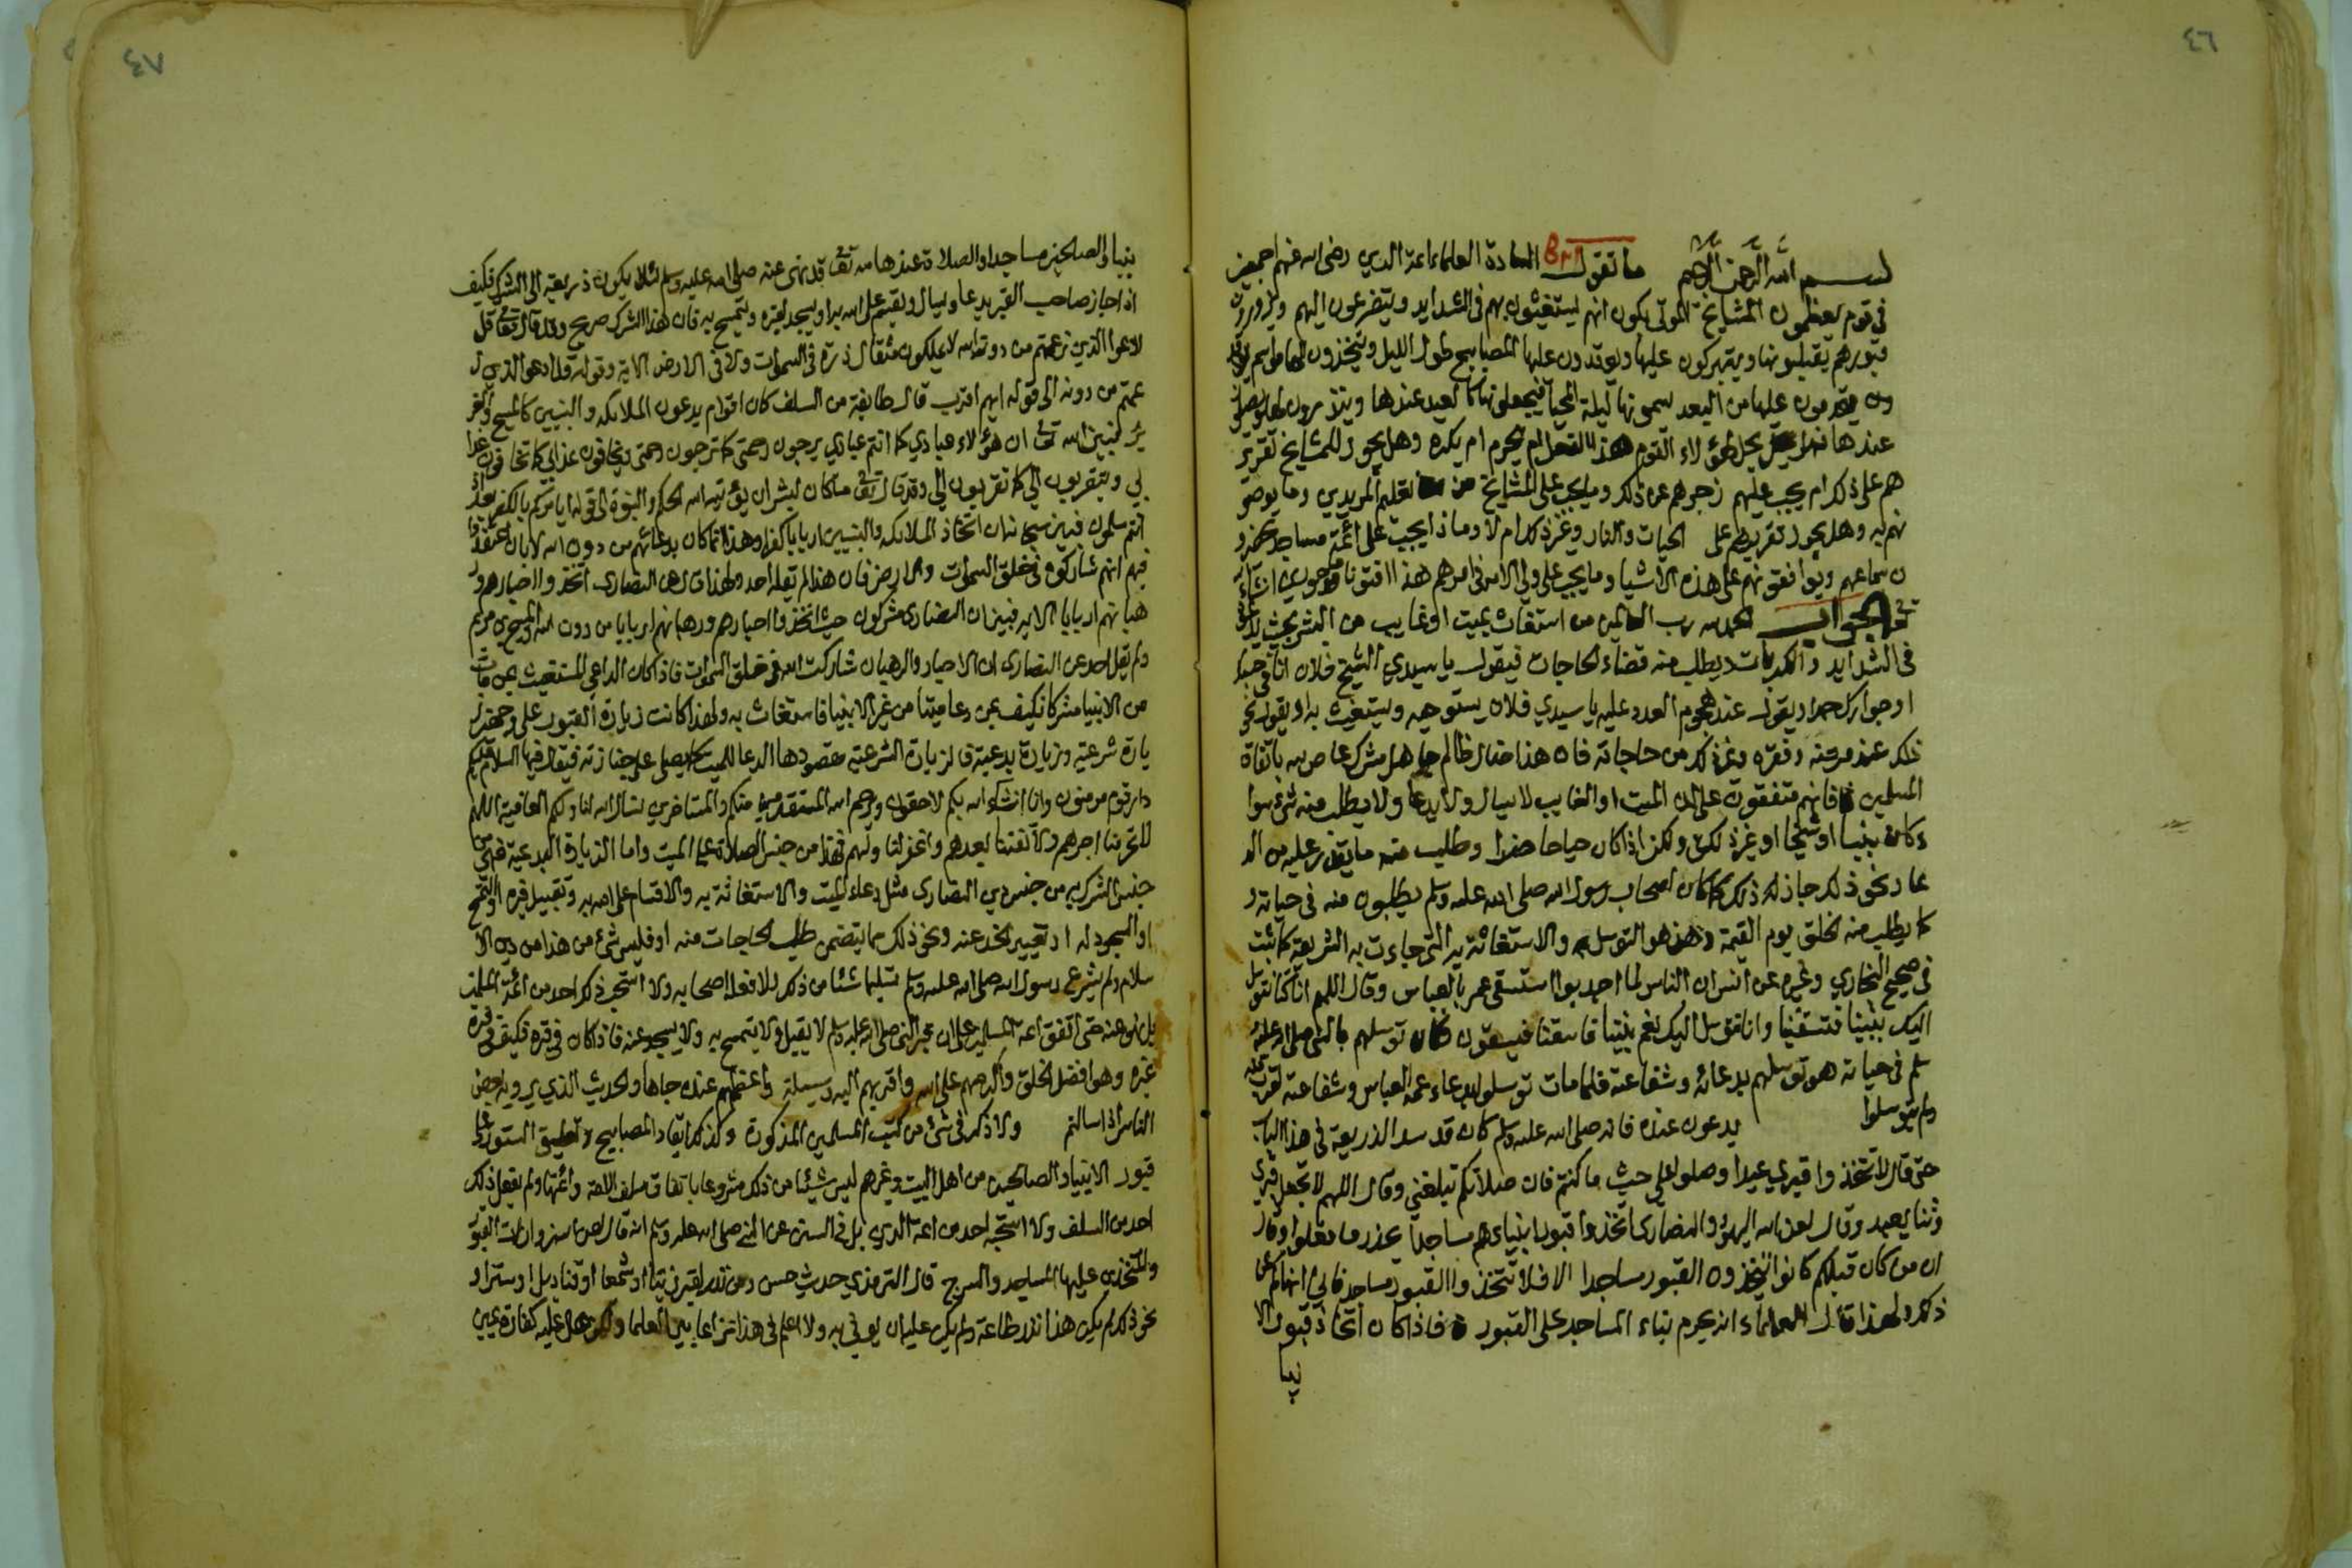 ٤٦
بسم الله الرحمن الرحيم ما تقول السادة العلماء ائمة الدين رضي الله عنهم اجمعين
في قوم يعظمون المشايخ الموتى يكون انهم يستغيثون بهم في الشدايد ويتضرعون اليهم ويزورون
قبورهم يقبلونها ويتبركون عليها ويوقدون عليها المصابيح طول الليل ويتخذون لها مواسم
يقدمون عليها من البعد يسمونها ليلة المحيا فيجعلونها كالعيد عندها وينذرون لها ويصلون
عندها يحل لهؤلاء القوم هذا الفعل ام يحرم ام يكره وهل يجوز للمشايخ تقرير
هم على ذلك ام يجب عليهم زجرهم عن ذلك وما يجب على المشايخ من تعليم المريدين وما يوصو
نهم به وهل يجوز تقريرهم على الحيات والنار وغير ذلك ام لا وماذا يجب على ائمة مساجد يحضرو
ن سماعهم ويوافقونهم على هذه الاشيا وما يجب على ولي الامر في امرهم هذا افتونا ماجورين ان شاء الله
تعالى الجواب الحمد لله رب العالمين من استغاث بميت او غايب من البشر بحيث يدعوه
في الشدايد والكربات ويطلب منه قضاء الحاجات فيقول يا سيدي الشيخ فلان انا في حسبك
او جوارك او يقول عند هجوم العدو عليه يا سيدي فلان يستوحيه ويستغيث به او يقول نحو
ذلك عند مرضه وفقره وغير ذلك من حاجاته فان هذا ضال ظالم جاهل مشرك عاص لله باتفاق
المسلمين فانهم متفقون على ان الميت او الغايب لا يسال ولا يدعا ولا يطلب منه شئ سوا
ء كان نبيا او شيخا او غير ذلك ولكن اذا كان حيا حاضرا وطلب منه ما يقدر عليه من الد
عا ونحو ذلك جاز له ذلك كما كان اصحاب رسول الله صلى الله عليه وسلم يطلبون منه في حياته و
كما يطلب منه الخلق يوم القيمة وهذا هو التوسل به والاستغاثة به التي جاءت به الشريعة كما ثبت
في صحيح البخاري وغيره عن انس ان الناس لما اجدبوا استسقى عمر بالعباس وقال اللهم انا كنا نتوسل
اليك بنبينا فتسقينا وانا نتوسل اليك بعم نبينا فاسقنا فيسقون فكان توسلهم بالنبي صلى الله عليه و
سلم في حياته هو توسلهم بدعائه وشفاعته فلما مات توسلوا بدعاء عمه العباس وشفاعته لقربه منه
ولم يتوسلوا يدعون عنده فانه صلى الله عليه وسلم كان قد سد الذريعة في هذا الباب
حتى قال لا تتخذوا قبري عيدا وصلوا علي حيث ما كنتم فان صلاتكم تبلغني وقال اللهم لا تجعل قبري
وثنا يعبد وقال لعن الله اليهود والنصارى اتخذوا قبور انبياءهم مساجد يحذر ما فعلوا وقال
ان من كان قبلكم كانوا يتخذون القبور مساجدا الا فلا تتخذوا القبور مساجد فاني انهاكم عن
ذلك ولهذا قال العلماء انه يحرم بناء المساجد على القبور فاذا كان اتخاذ قبور الا
نبيا
٤٧
نبيا والصالحين مساجدا والصلاة عندها لله تعالى قد نهى عنه صلى الله عليه وسلم لئلا يكون ذريعة الى الشرك فكيف
اذا جاز صاحب القبر يدعا ويسال ويقسم على الله به او يسجد لقبره ويتمسح به فان هذا الشرك صريح وقد قال تعالى قل
ادعوا الذين زعمتم من دون الله لا يملكون مثقال ذرة في السموات ولا في الارض الاية وقوله قل ادعوا الذين ز
عمتم من دونه الى قوله ايهم اقرب قال طايفة من السلف كان اقوام يدعون الملائكة والنبيين كالمسيح والعز
ير فبين الله تعالى ان هؤلاء عبادي كما انتم عبادي يرجون رحمتي كما ترجون رحمتي ويخافون عذابي كما تخافون عذا
بي ويتقربون الي كما تقربون الي وقد قال تعالى ما كان لبشر ان يؤتيه الله الحكم والنبوة الى قوله ايامركم بالكفر بعد اذ
انتم مسلمون فبين سبحانه ان اتخاذ الملائكة والنبيين اربابا كفر وهذا انما كان بدعائهم من دون الله لا بان اعتقدوا
فيهم انهم شاركوه في خلق السموات والارض فان هذا لم يقله احد ولهذا قال عن النصارى اتخذوا احبارهم ور
هبانهم اربابا الاية فبين ان النصارى مشركون حيث اتخذوا احبارهم ورهبانهم اربابا من دون الله والمسيح بن مريم
ولم يقل احد عن النصارى ان الاحبار والرهبان شاركت الله في خلق السموات فاذا كان الداعي المستغيث بمن مات
من الانبيا مشركا فكيف بمن دعا ميتا من غير الانبيا فاستغاث به ولهذا كانت زيارة القبور على وجهين ز
يارة شرعية وزيارة بدعية فالزيارة الشرعية مقصودها الدعا للميت كما يصلى على جنازته فيقال فيها السلام عليكم
دار قوم مومنون وانا ان شاء الله بكم لاحقون ويرحم الله المستقدمين منا ومنكم والمستاخرين نسال الله لنا ولكم العافية اللهم
لا تحرمنا اجرهم ولا تفتنا بعدهم واغفر لنا ولهم فهذا من جنس الصلاة على الميت واما الزيارة البدعية فهي من
جنس الشرك من جنس دين النصارى مثل دعاء الميت والاستغاثة به والاقسام على الله به وتقبيل قبره او التمسح
او السجود له او تعفير الخد عنده ونحو ذلك مما يتضمن طلب الحاجات منه او فليس شئ من هذا من دين الا
سلام ولم يشرع رسول الله صلى الله عليه وسلم شيئا من ذلك ولا فعله اصحابه ولا استحب ذلك احد من ائمة المسلمين
بل نهي عنه حتى اتفق ائمة المسلمين على ان قبر النبي صلى الله عليه وسلم لا يقبل ولا يتمسح به ولا يسجد عنده فاذا كان في قبره فكيف في قبر
غيره وهو افضل الخلق واكرمهم على الله واقربهم اليه وسيلة واعظمهم عنده جاها والحديث الذي يرويه بعض
الناس اذا سالتم ولا ذكر في شئ من كتب المسلمين المذكورة وكذلك ايقاد المصابيح وتعليق الستور على
قبور الانبيا والصالحين من اهل البيت وغيرهم ليس شيئا من ذلك مشروعا باتفاق سلف الامة وائمتها ولم يفعل ذلك
احد من السلف ولا استحبه احد من ائمة الدين بل في السنن عن النبي صلى الله عليه وسلم انه قال لعن الله زوارات القبور
والمتخذين عليها المساجد والسرج قال الترمذي حديث حسن ومن نذر لقبر زيتا او شمعا او قناديل او ستر او
نحو ذلك لم يكن هذا نذر طاعة ولم يكن عليه ان يوفي به ولا اعلم في هذا نزاعا بين العلما ولكن هل عليه كفارة يمين